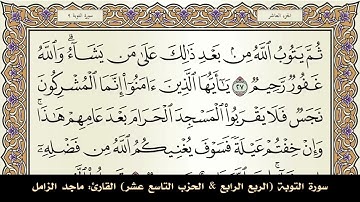 الجزء العاشر
سورة التوبة ٩
ثُمَّ يَتُوبُ اللَّهُ مِنۢ بَعْدِ ذَٰلِكَ عَلَىٰ مَن يَشَآءُ ۗ وَاللَّهُ
غَفُورٌ رَّحِيمٌ ٢٧ يَٰٓأَيُّهَا الَّذِينَ ءَامَنُوٓا۟ إِنَّمَا الْمُشْرِكُونَ
نَجَسٌ فَلَا يَقْرَبُوا۟ الْمَسْجِدَ الْحَرَامَ بَعْدَ عَامِهِمْ هَٰذَا ۚ
وَإِنْ خِفْتُمْ عَيْلَةً فَسَوْفَ يُغْنِيكُمُ اللَّهُ مِن فَضْلِهِۦٓ
سورة التوبة (الربع الرابع & الحزب التاسع عشر) القارئ: ماجد الزامل